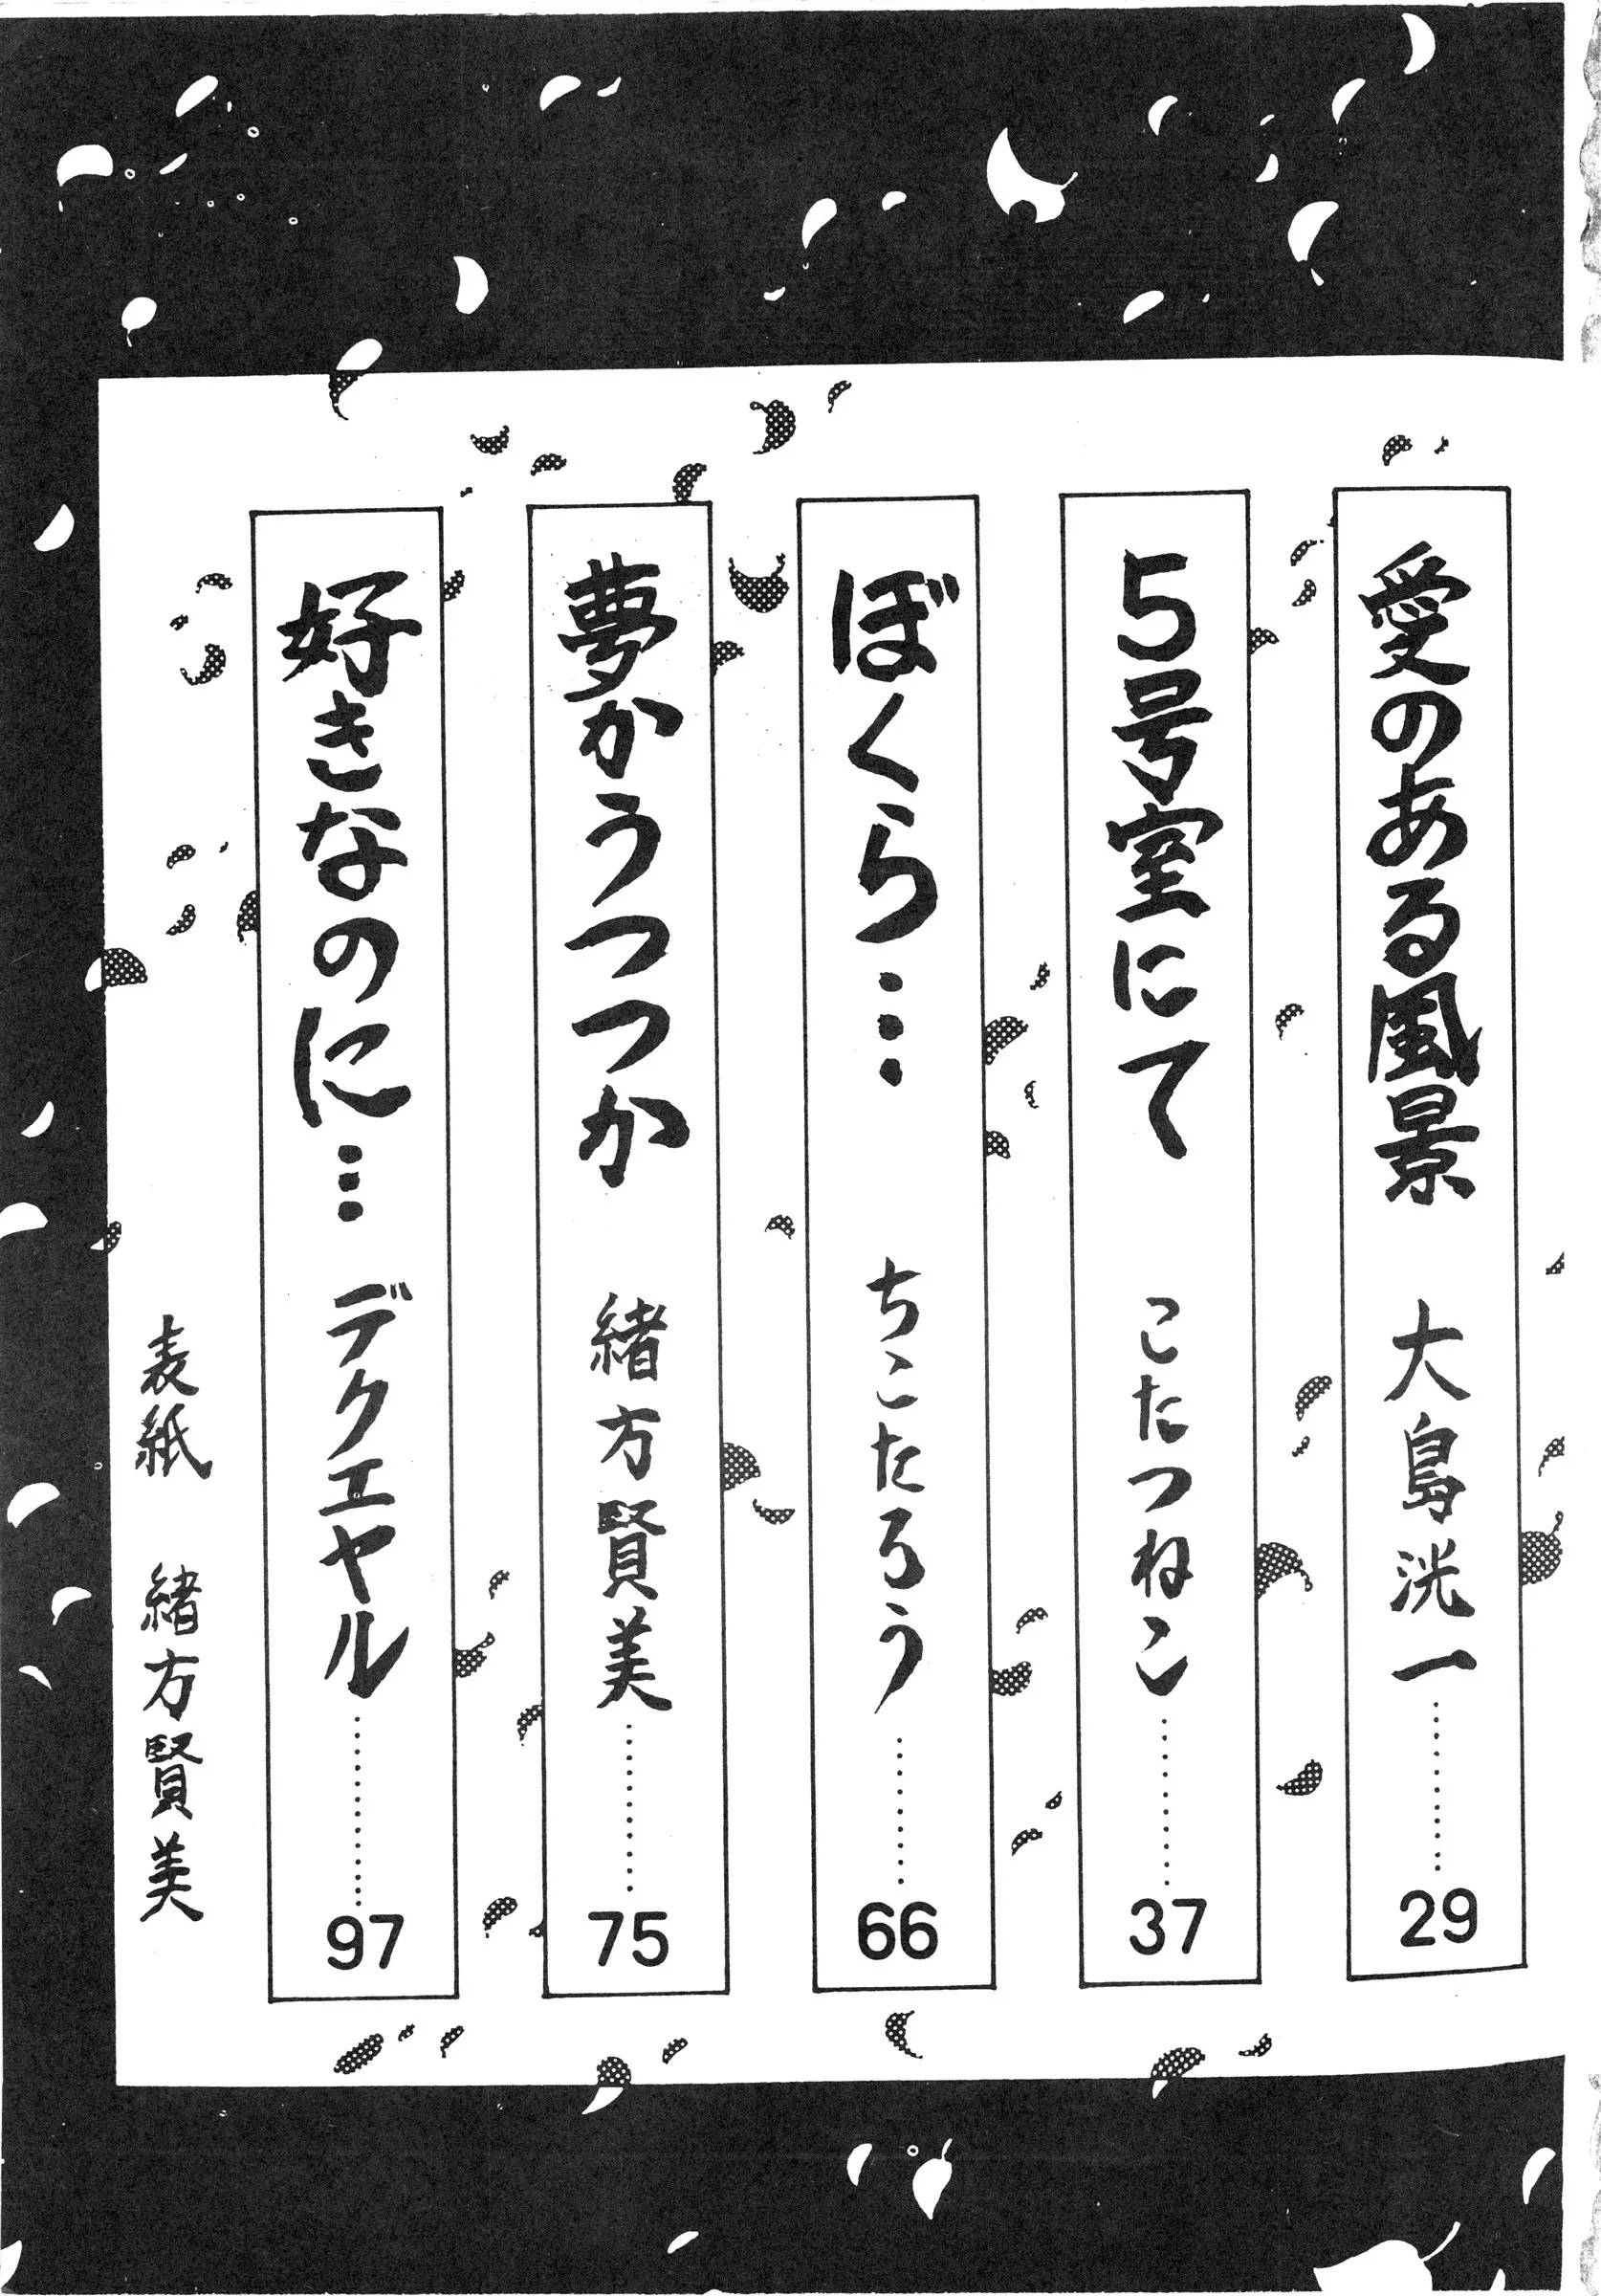 愛のある風景 大島洸一………29
5号室にて こたつねこ………37
ぼくら… ちこたろう………66
夢かうつつか 緒方賢美………75
好きなのに… デクエヤル………97
表紙 緒方賢美